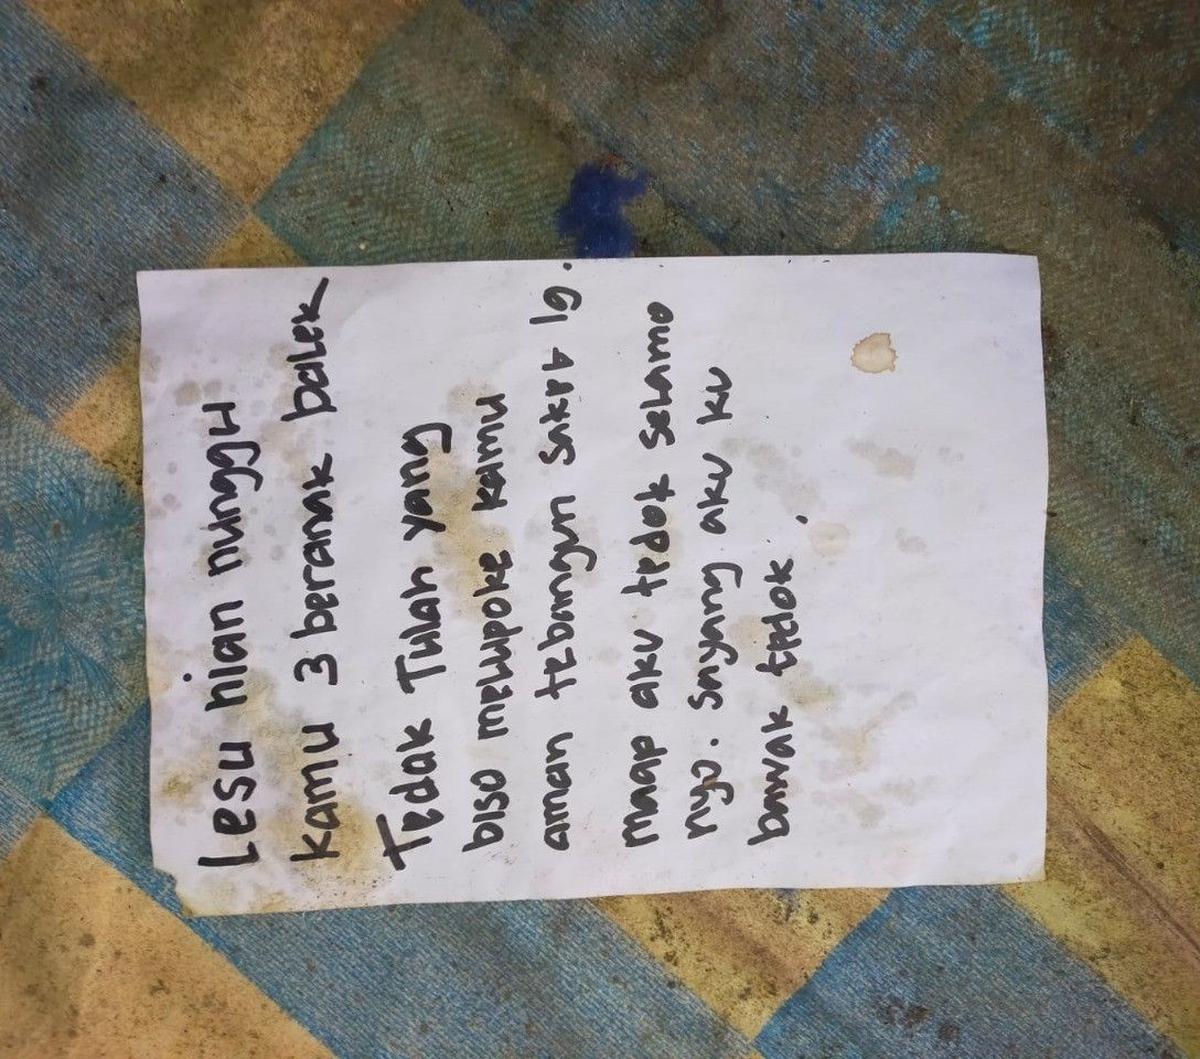 Lesu nian nunggu
kamu 3 beranak balek
Tedak Tulah yang
biso melupoke kamu
aman tebangun saket lg.
maap aku tedok selamo
nyo. sayang aku ku
bawak tedok.